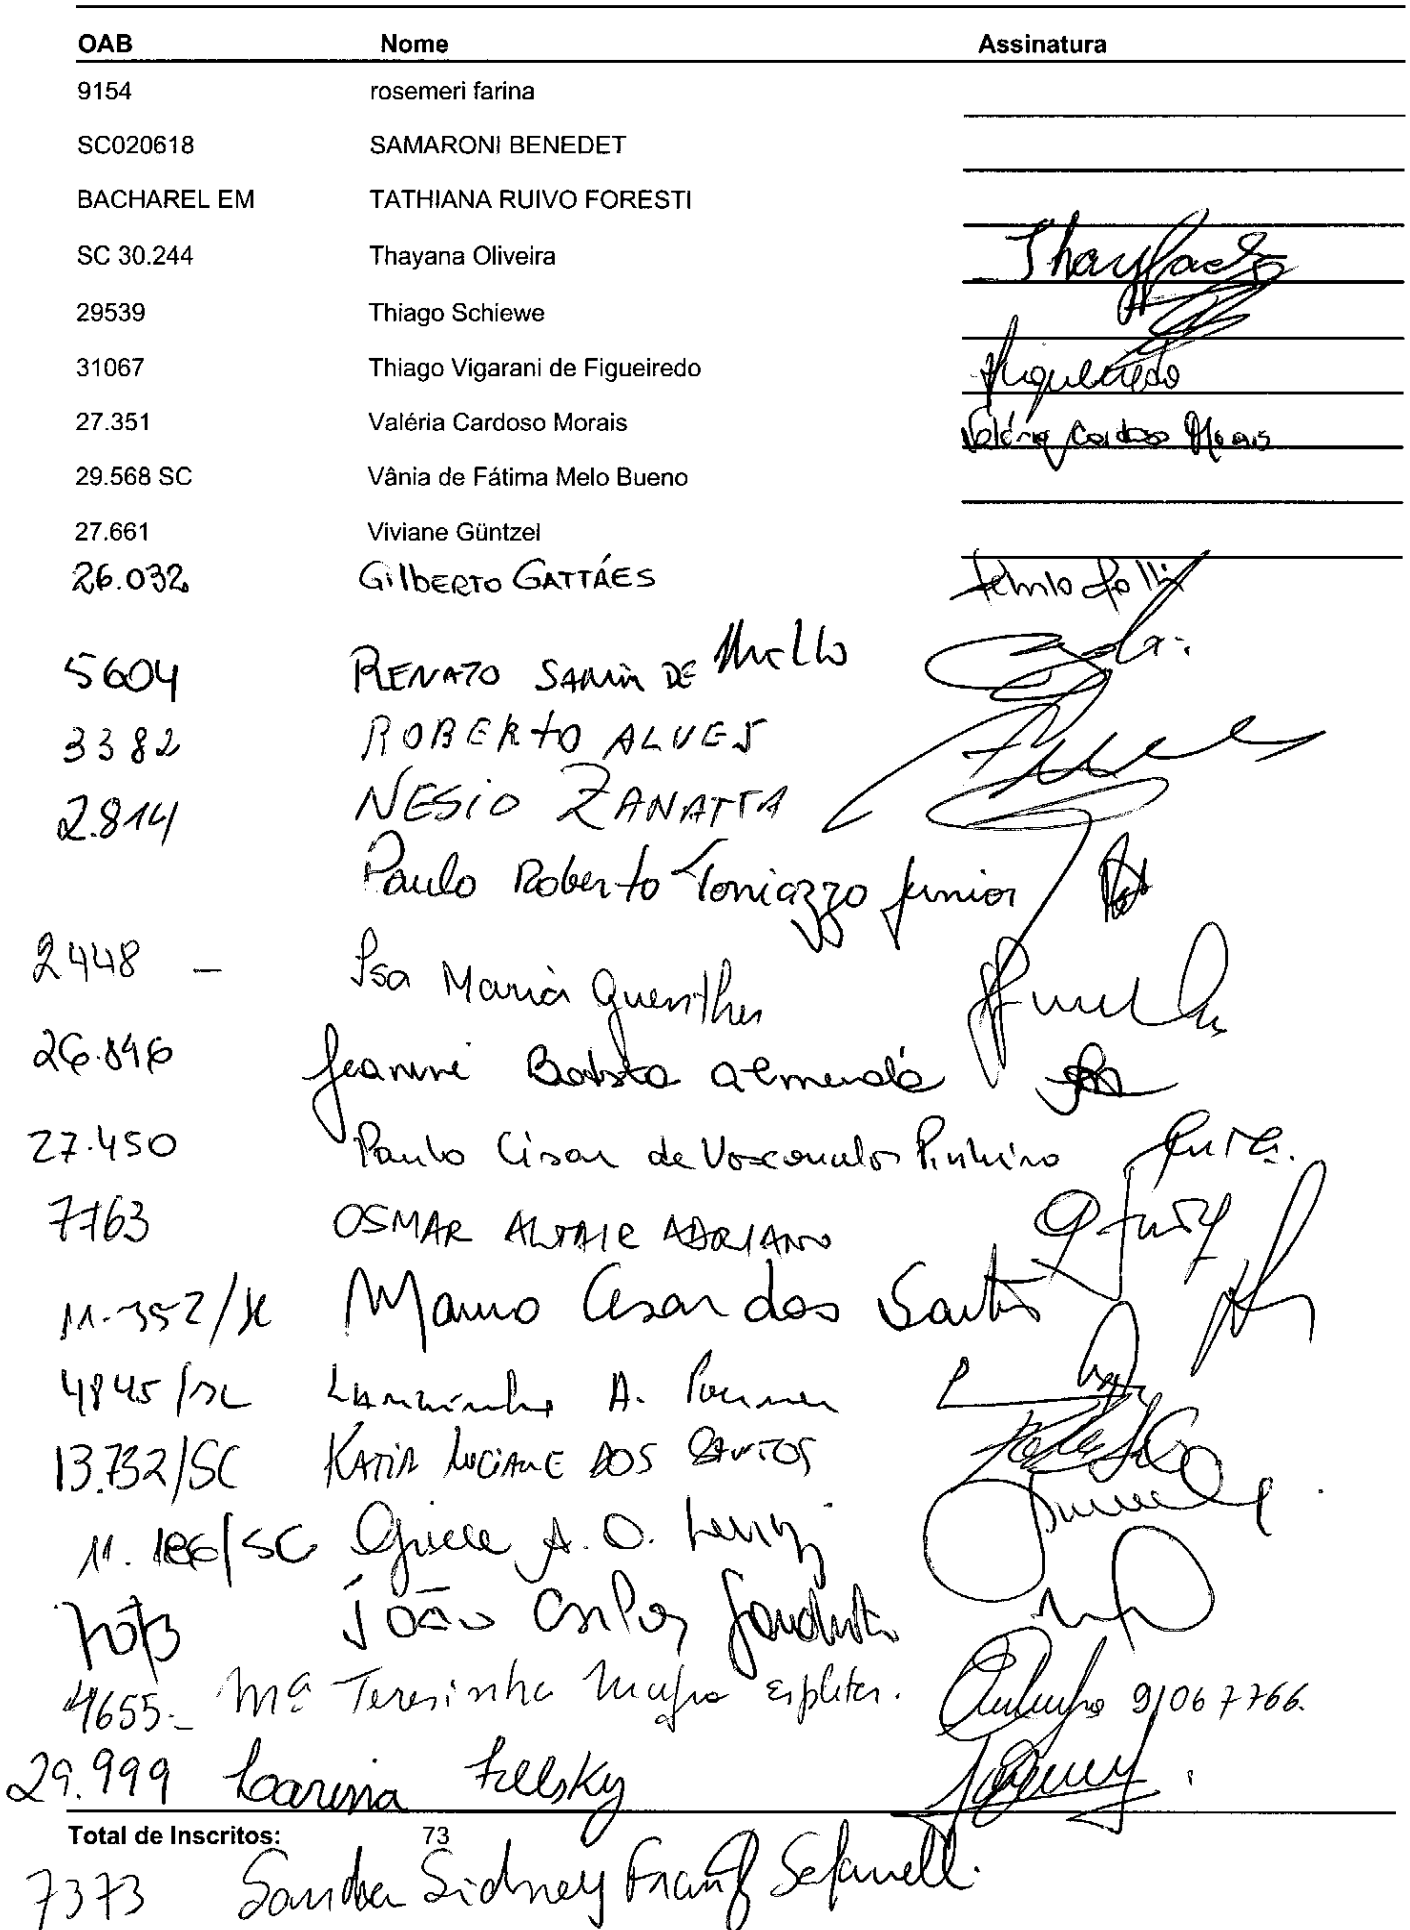 OAB Nome Assinatura
9154 rosemeri farina
SC020618 SAMARONI BENEDET
BACHAREL EM TATHIANA RUIVO FORESTI
SC 30.244 Thayana Oliveira
29539 Thiago Schiewe
31067 Thiago Vigarani de Figueiredo Figueiredo
27.351 Valéria Cardoso Morais Valéria Cardoso Morais
29.568 SC Vânia de Fátima Melo Bueno
27.661 Viviane Güntzel
26.032 GilbERTO GATTÁES
5604 RENATO DE Mello
3382 ROBERTO ALVES
2.814 NESIO ZANATTA
Paulo Roberto Toniazzo Junior
2448 - Isa Maria Guenther
26.846 Jeanine Batista Almeida
27.450 Paulo Cesar de Vasconcelos Pinheiro
7763 OSMAR ALTAIR ADRIANO
11.352/SC Mauro Cesar dos Santos
4845/SC A.
13.732/SC KATIA LUCIANE DOS SANTOS
11.186/SC A. O.
João Carlos
4655- Mª Teresinha Mafra 91067766.
29.999 Karina
Total de Inscritos: 73
7373 Sandra Sidney